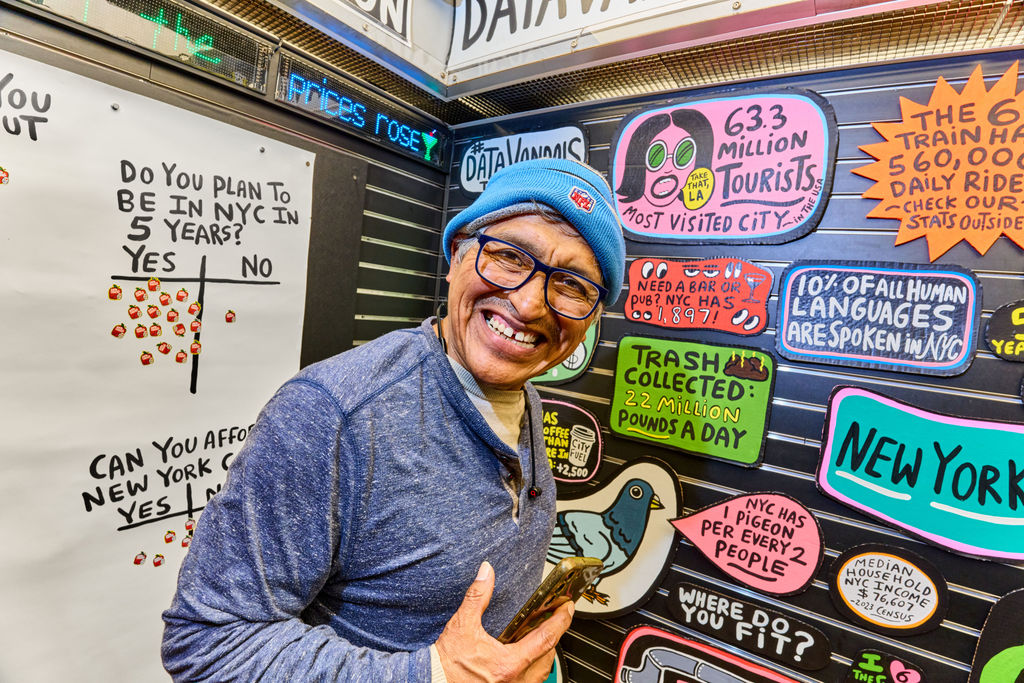 the
prices rose
YOU
UT
DO YOU PLAN TO
BE IN NYC IN
5 YEARS?
YES NO
CAN YOU AFFO
NEW YORK C
YES N
ON
DATA VAN
#DATAVANDALS
63.3
MILLION
TOURISTS
MOST VISITED CITY IN THE USA
TAKE
THAT,
LA
THE 6
TRAIN HA
560,000
DAILY RIDE
CHECK OUR
STATS OUTSIDE
NEED A BAR OR
PUB? NYC HAS
1,897!
10% OF ALL HUMAN
LANGUAGES
ARE SPOKEN IN NYC
YEA
TRASH
COLLECTED:
22 MILLION
POUNDS A DAY
AS
OFFEE
THAN
RE IN
+2,500
CITY
FUEL
NEW YORK
NYC HAS
1 PIGEON
PER EVERY 2
PEOPLE
MEDIAN
HOUSEHOLD
NYC INCOME
$76,607
-2023 CENSUS
WHERE DO
YOU FIT?
I
THE 6